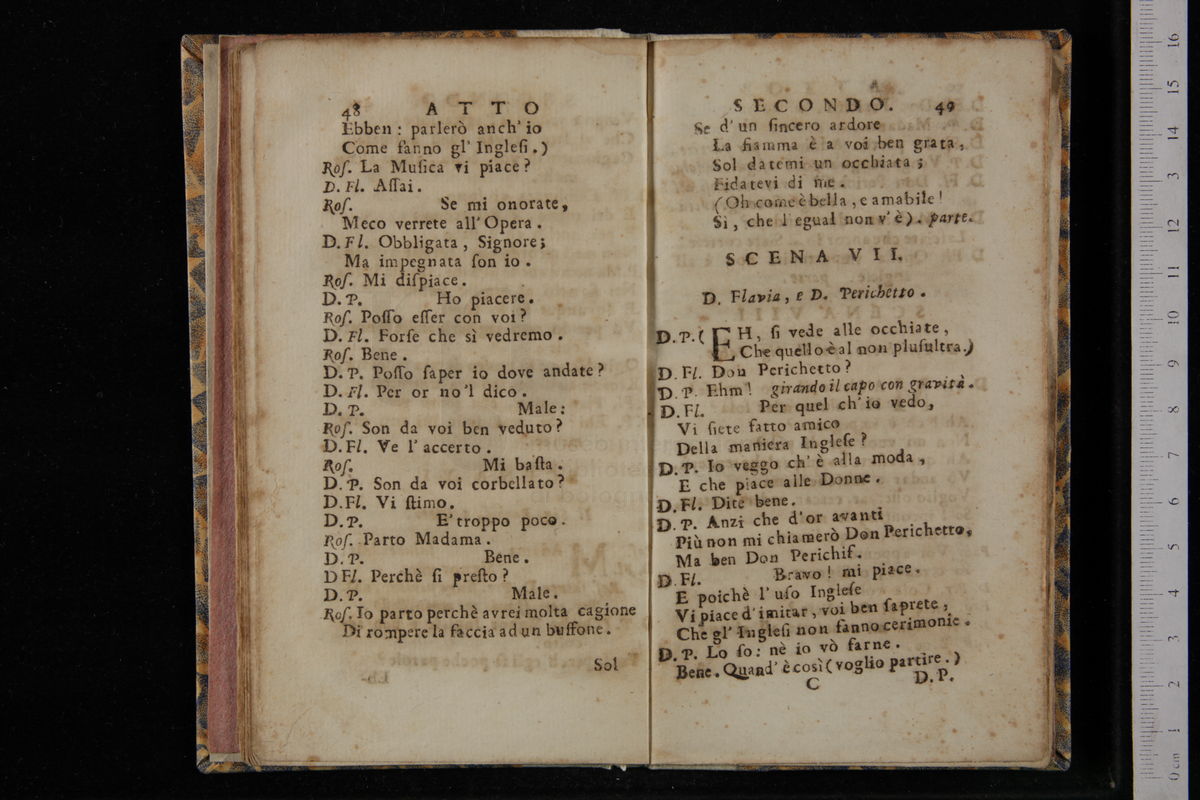 48 ATTO
Ebben: parlerò anch' io
Come fanno gl' Ingleſi.)
Roſ. La Muſica vi piace?
D. Fl. Aſſai.
Roſ. Se mi onorate,
Meco verrete all' Opera.
D. Fl. Obbligata, Signore;
Ma impegnata ſon io.
Roſ. Mi diſpiace.
D. P. Ho piacere.
Roſ. Poſſo eſſer con voi?
D. Fl. Forſe che sì vedremo.
Roſ. Bene.
D. P. Poſſo ſaper io dove andate?
D. Fl. Per or no'l dico.
D. P. Male:
Roſ. Son da voi ben veduto?
D. Fl. Ve l' accerto.
Roſ. Mi baſta.
D. P. Son da voi corbellato?
D. Fl. Vi ſtimo.
D. P. E' troppo poco.
Roſ. Parto Madama.
D. P. Bene.
D Fl. Perchè ſi preſto?
D. P. Male.
Roſ. Io parto perchè avrei molta cagione
Di rompere la faccia ad un buffone.
Sol
SECONDO. 49
Se d' un ſincero ardore
La fiamma è a voi ben grata,
Sol datemi un occhiata;
Fidatevi di me.
(Oh come è bella, e amabile!
Sì, che l' egual non v' è). parte.
SCENA VII.
D. Flavia, e D. Perichetto.
D. P. (EH, ſi vede alle occhiate,
Che quello è al non pluſultra.)
D. Fl. Don Perichetto?
D. P. Ehm! girando il capo con gravità.
D. Fl. Per quel ch' io vedo,
Vi ſiete fatto amico
Della maniera Ingleſe?
D. P. Io veggo ch' è alla moda,
E che piace alle Donne.
D. Fl. Dite bene.
D. P. Anzi che d' or avanti
Più non mi chiamerò Don Perichetto,
Ma ben Don Perichif.
D. Fl. Bravo! mi piace.
E poichè l' uſo Ingleſe
Vi piace d' imitar, voi ben ſaprete,
Che gl' Ingleſi non fanno cerimonie.
D. P. Lo ſo: nè io vò farne.
Bene. Quand' è così (voglio partire.)
C D. P.
0 cm 1 2 3 4 5 6 7 8 9 10 11 12 13 14 15 16